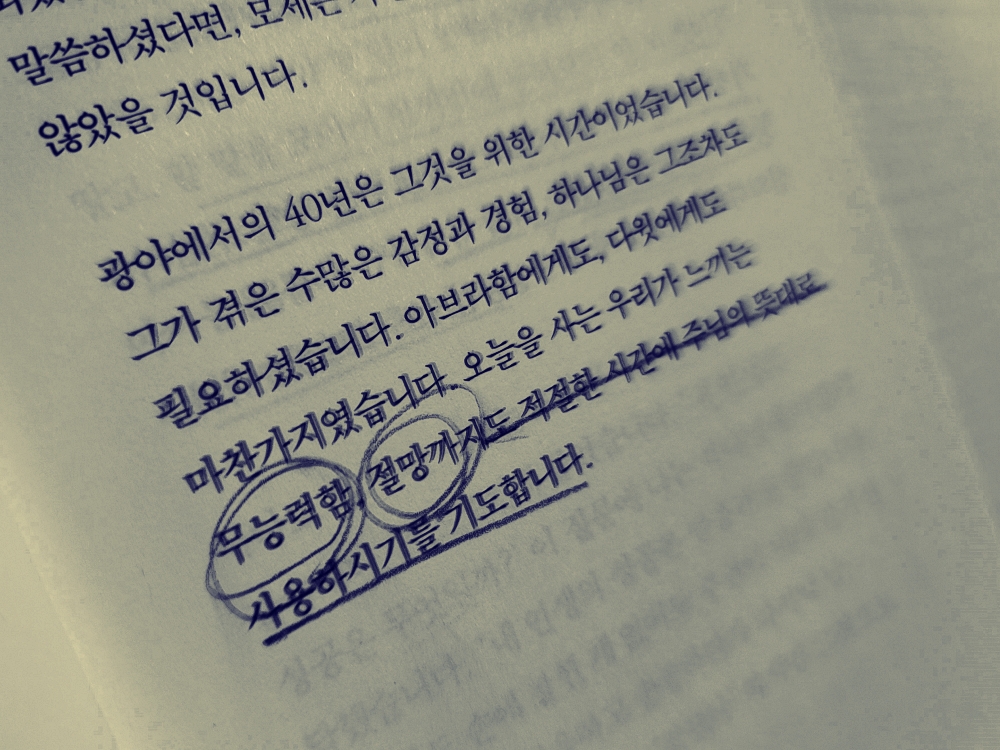 말씀하셨다면, 모세는
않았을 것입니다.
광야에서의 40년은 그것을 위한 시간이었습니다.
그가 겪은 수많은 감정과 경험, 하나님은 그조차도
필요하셨습니다. 아브라함에게도, 다윗에게도
마찬가지였습니다. 오늘을 사는 우리가 느끼는
무능력함, 절망까지도 적절한 시간에 주님의 뜻대로
사용하시기를 기도합니다.